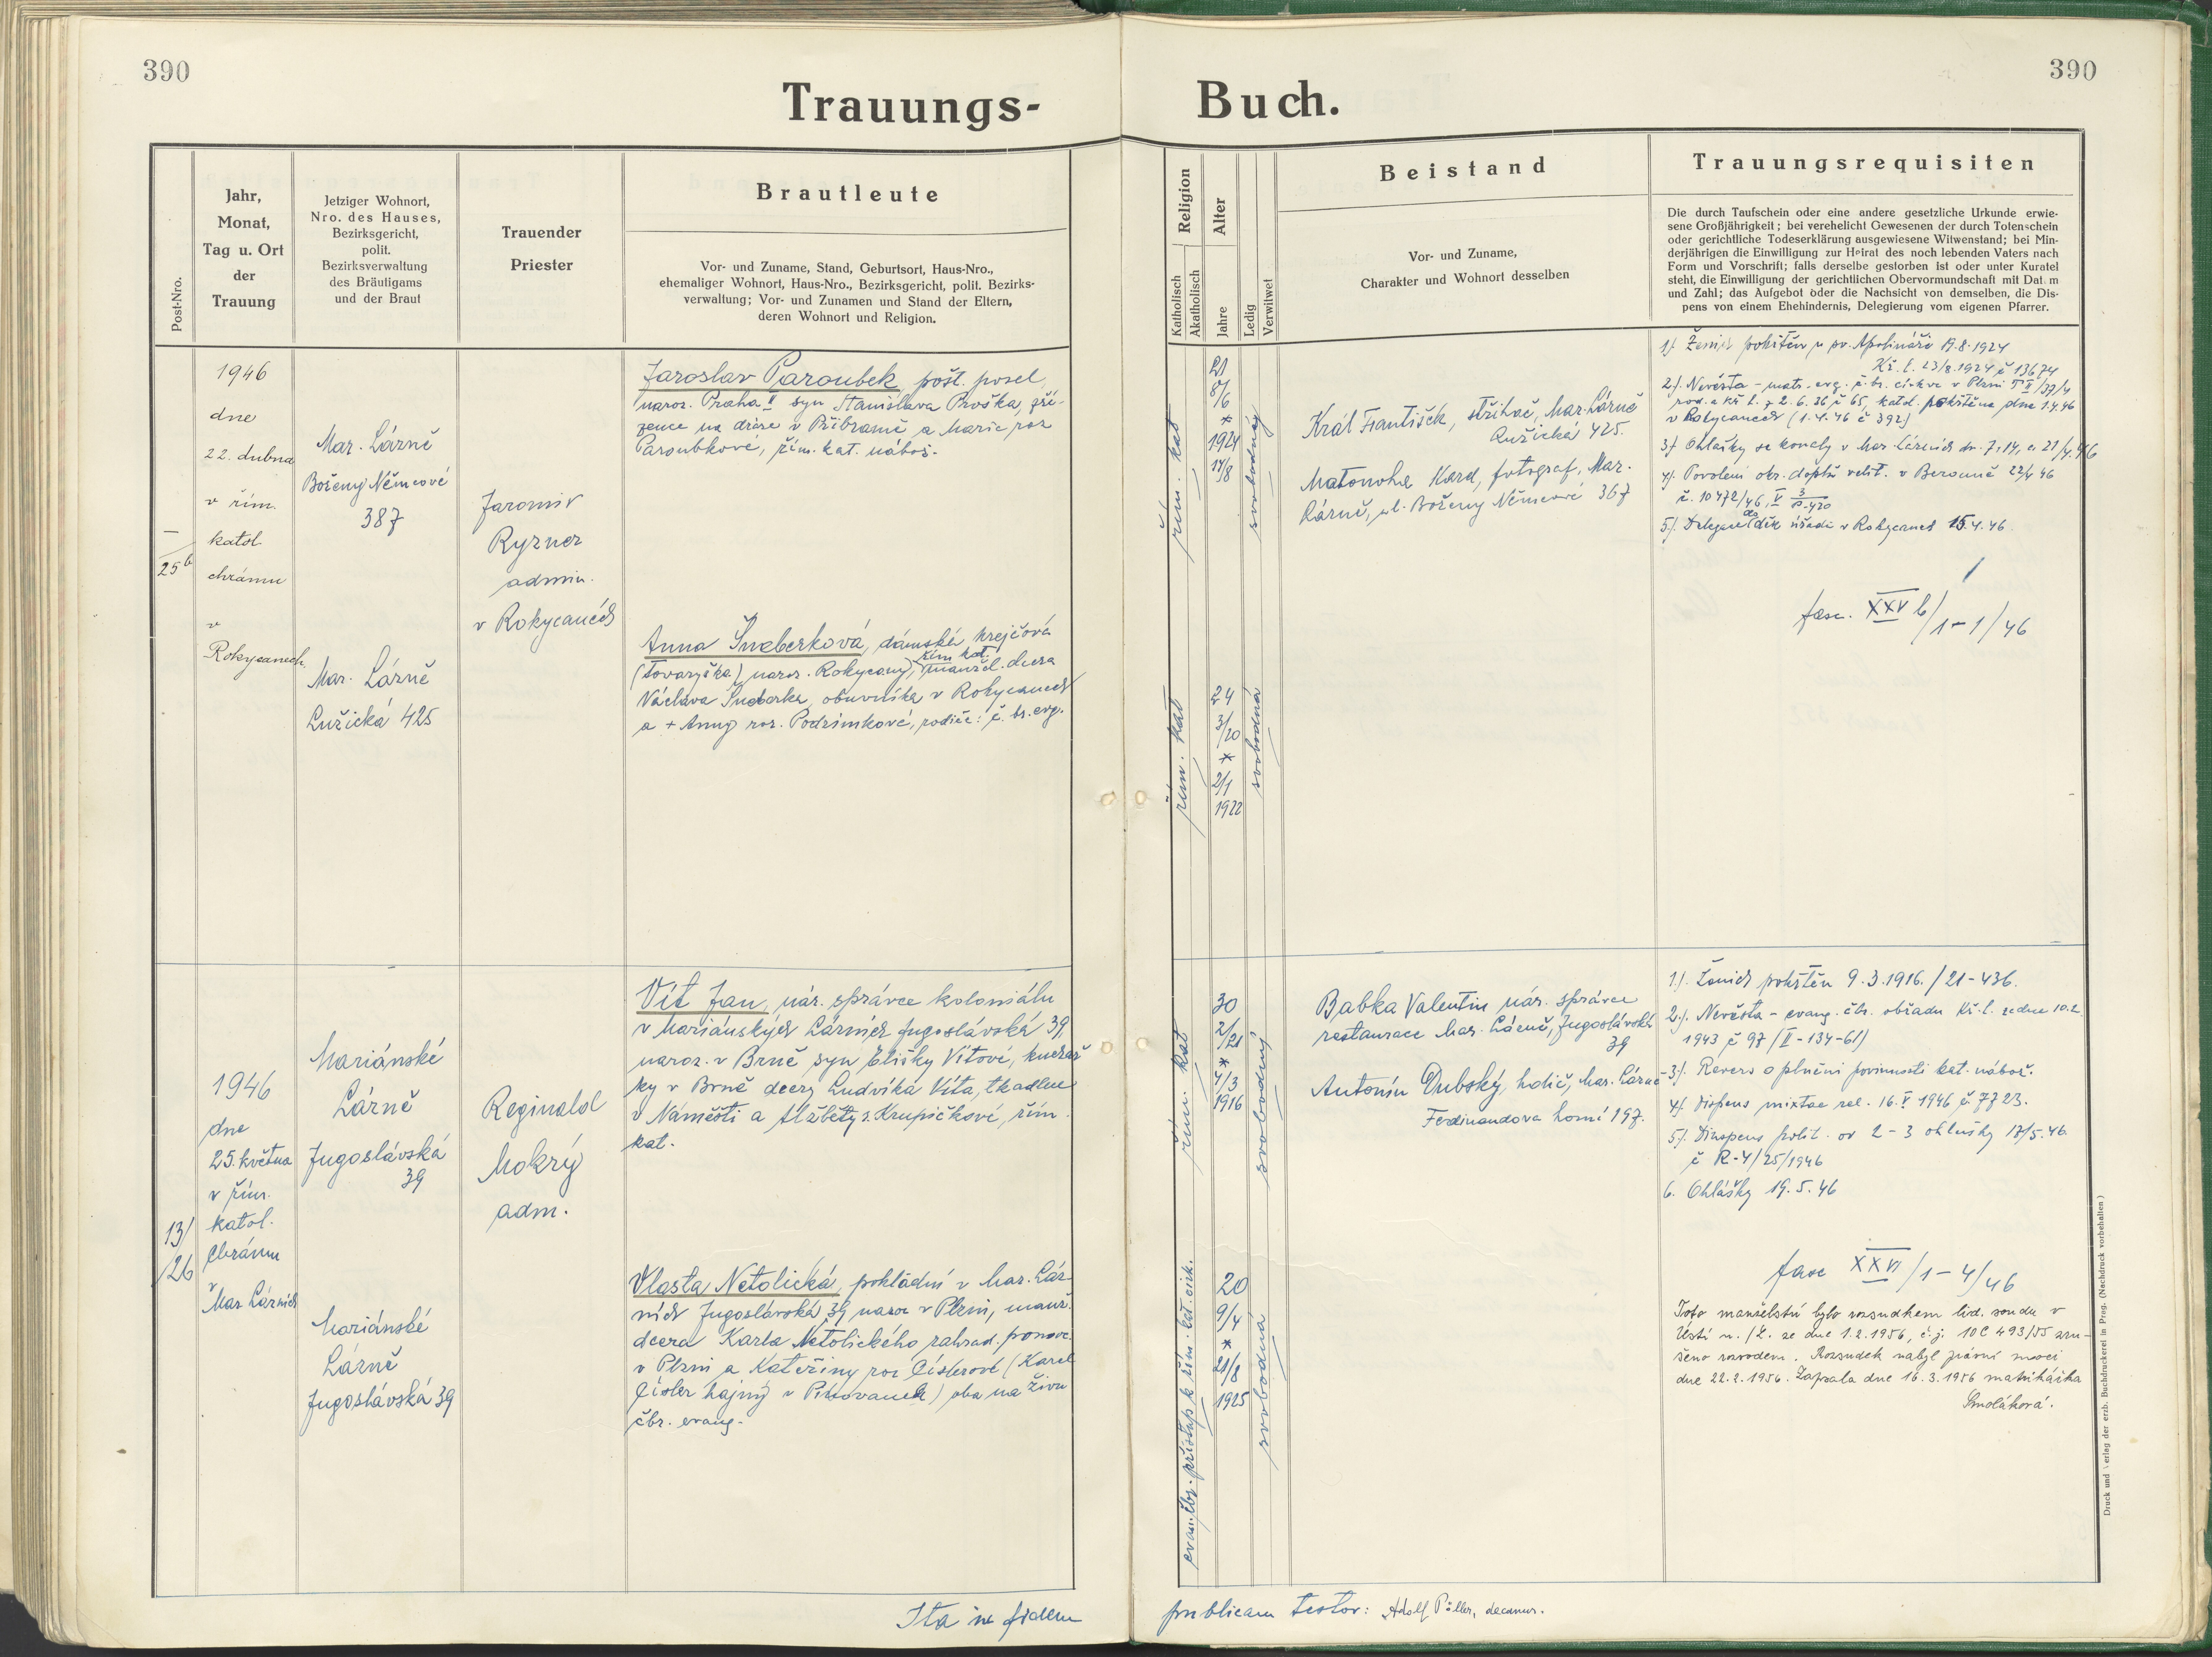 390
390
Trauungs-
Buch.
Post-Nro.
Jahr,
Monat,
Tag u. Ort
der
Trauung
Jetziger Wohnort,
Nro. des Hauses,
Bezirksgericht,
polit.
Bezirksverwaltung
des Bräutigams
und der Braut
Trauender
Priester
Brautleute
Vor- und Zuname, Stand, Geburtsort, Haus-Nro.,
ehemaliger Wohnort, Haus-Nro., Bezirksgericht, polit. Bezirks-
verwaltung; Vor- und Zunamen und Stand der Eltern,
deren Wohnort und Religion.
Religion
Katholisch
Akatholisch
Alter
Jahre
Ledig
Verwitwet
Beistand
Vor- und Zuname,
Charakter und Wohnort desselben
Trauungsrequisiten
Die durch Taufschein oder eine andere gesetzliche Urkunde erwie-
sene Großjährigkeit; bei verehelicht Gewesenen der durch Totenschein
oder gerichtliche Todeserklärung ausgewiesene Witwenstand; bei Min-
derjährigen die Einwilligung zur Heirat des noch lebenden Vaters nach
Form und Vorschrift; falls derselbe gestorben ist oder unter Kuratel
steht, die Einwilligung der gerichtlichen Obervormundschaft mit Datum
und Zahl; das Aufgebot oder die Nachsicht von demselben, die Dis-
pens von einem Ehehindernis, Delegierung vom eigenen Pfarrer.
—
25b
1946
dne
22. dubna
v řím.
katol
chrámu
v
Rokycanech.
Mar. Lázně
Boženy Němcové
387
Mar. Lázně
Lužická 425
Jaromír
Ryzner
admin.
v Rokycanech
Jaroslav Paroubek, pošt. posel,
naroz. Praha II syn Stanislava Proška, zří-
zence na dráze v Příbramě a Marie roz
Paroubkové, řím. kat. nábož.
Anna Šneberková, dámská krejčová
řím kat.
(tovaryška) naroz. Rokycany, manžel. dcera
Václava Šneberka, obuvníka v Rokycanech
a + Anny roz. Podzimkové, rodiče: č. br. evg.
řím. kat
21
8/6
*
1924
14/8
svobodný
řím. kat
24
3/20
*
2/1
1922
svobodná
Král František, střihač, Mar. Lázně
Lužická 425.
Matonoha Karel, fotograf, Mar.
Lázně, ul. Boženy Němcové 367
1). Ženich pokřtěn u sv. Apolináře 19.8.1924
Kř. l. 23/8.1924 č 13674
2). Nevěsta – matr. evg. č. br. církve v Plzni T II/37/4
rod. a kř l. z 2.6.36 č 65, katol. pokřtěna dne 1.4.46
v Rokycanech (1.4.46 č 392)
3). Ohlášky se konaly v Mar. Lázních dn. 7, 14, a 21/4.46
4). Povolení okr. doplň. velit. v Berouně 22/4 46
č. 10472/46, V 3/P-420
5). Delegace děk. úřadu v Rokycanech 15.4.46.
fasc. XXV b/1–1/46
13/
/26
1946
dne
25. května
v řím.
katol.
chrámu
v
Mar. Lázních
Mariánské
Lázně
Jugoslávská
39
Mariánské
Lázně
Jugoslávská 39
Reginald
Mokrý
adm.
Vít Jan, nár. správce koloniálu
v Mariánských Lázních Jugoslávská 39,
naroz. v Brně syn Elišky Vítové, kuchař
ky v Brně dcery Ludvíka Víta, tkadlce
v Náměšti a Alžběty r. Krupičkové, řím.
kat.
Vlasta Netolická, pokladní v Mar. Láz
ních Jugoslávská 39 naroz v Plzni, manž.
dcera Karla Netolického zahrad. pomoc.
v Plzni a Kateřiny roz Císlerové (Karel
Císler hajný v Pňovanech) oba na živu
čbr. evang.
řím. kat
30
2/21
*
4/3
1916
svobodný
evan. čbr. přístup k řím. kat. cirk.
20
9/4
*
21/8
1925
svobodná
Babka Valentin nár. správce
restaurace Mar. Lázně, Jugoslávská
39
Antonín Dubský, holič, Mar. Lázně
Ferdinandova horní 197.
1). Ženich pokřtěn 9.3.1916. / 21–436.
2.). Nevěsta – evang. čbr. obřadu Kř. l. ze dne 10.2.
1943 č 97 (II–134–61)
3). Revers o plnění povinnosti kat. nábož.
4). Dispens mixtae rel. 16. V 1946 č. 7723.
5). Dispens polit. od 2–3 ohlášky 17/5.46
č R–4/25/1946
6. Ohlášky 19.5.46
fasc XXVI/1–4/46
Toto manželství bylo rozsudkem lid. soudu v
Ústí n. /L. ze dne 1.2.1956, č.j. 10C 493/55 zru-
šeno rozvodem. Rozsudek nabyl právní moci
dne 22.2.1956. Zapsala dne 16.3.1956 matrikářka
Smoláková.
Ita in fidem
publicam testor: Adolf Pöller, decanus.
Druck und Verlag der erzb. Buchdruckerei in Prag. (Nachdruck vorbehalten.)